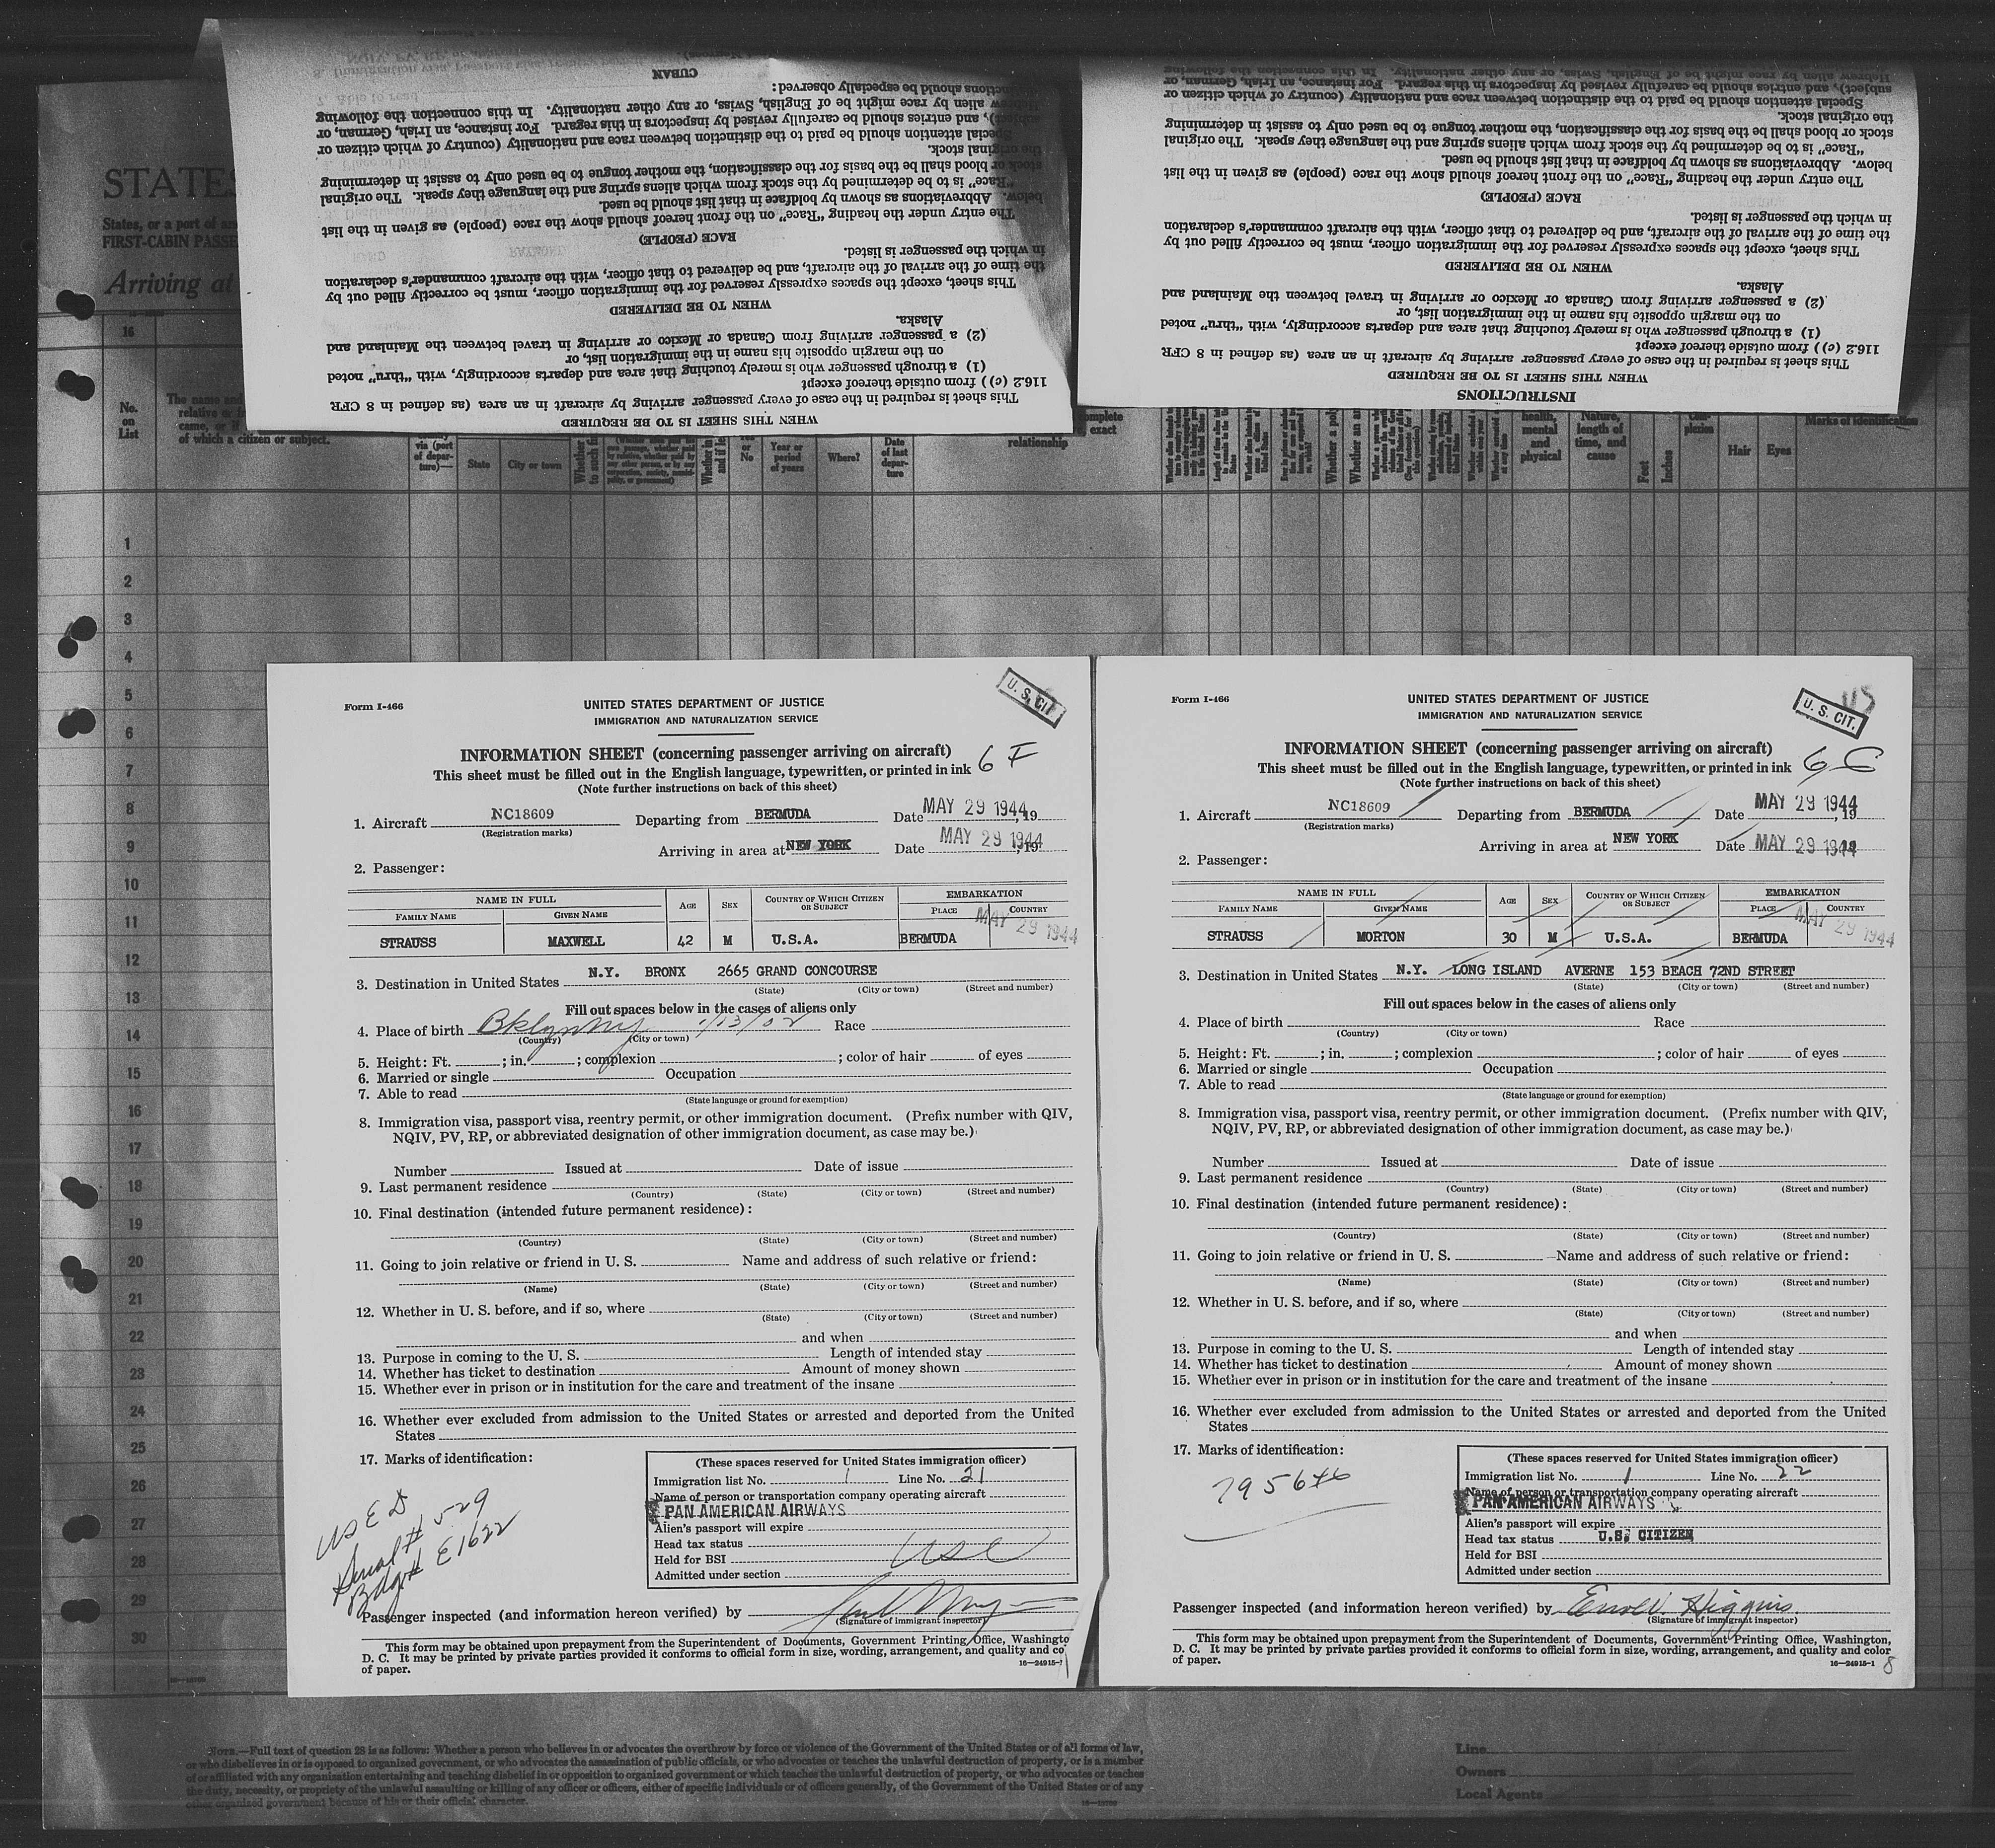 STATES
States, or a part of
FIRST-CABIN PASSE
Arriving at
CUBAN
ctions should be especially observed:
alien by race might be of English, Swiss, or any other nationality. In this connection the following
, and entries should be carefully revised by inspectors in this regard. For instance, an Irish, German, or
Special attention should be paid to the distinction between race and nationality (country of which citizen or
the original stock.
stock or blood shall be the basis for the classification, the mother tongue to be used only to assist in determining
"Race" is to be determined by the stock from which aliens spring and the language they speak. The original
below. Abbreviations as shown by boldface in that list should be used.
The entry under the heading "Race" on the front hereof should show the race (people) as given in the list
RACE (PEOPLE)
in which the passenger is listed.
the time of the arrival of the aircraft, and be delivered to that officer, with the aircraft commander's declaration
This sheet, except the spaces expressly reserved for the immigration officer, must be correctly filled out by
WHEN TO BE DELIVERED
Alaska.
(2) a passenger arriving from Canada or Mexico or arriving in travel between the Mainland and
on the margin opposite his name in the immigration list, or
(1) a through passenger who is merely touching that area and departs accordingly, with "thru" noted
116.2 (c)) from outside thereof except
This sheet is required in the case of every passenger arriving by aircraft in an area (as defined in 8 CFR
WHEN THIS SHEET IS TO BE REQUIRED
Hebrew alien by race might be of English, Swiss, or any other nationality. In this connection the following
subject), and entries should be carefully revised by inspectors in this regard. For instance, an Irish, German, or
Special attention should be paid to the distinction between race and nationality (country of which citizen or
the original stock.
stock or blood shall be the basis for the classification, the mother tongue to be used only to assist in determining
"Race" is to be determined by the stock from which aliens spring and the language they speak. The original
below. Abbreviations as shown by boldface in that list should be used.
The entry under the heading "Race" on the front hereof should show the race (people) as given in the list
RACE (PEOPLE)
in which the passenger is listed.
the time of the arrival of the aircraft, and be delivered to that officer, with the aircraft commander's declaration
This sheet, except the spaces expressly reserved for the immigration officer, must be correctly filled out by
WHEN TO BE DELIVERED
Alaska.
(2) a passenger arriving from Canada or Mexico or arriving in travel between the Mainland and
on the margin opposite his name in the immigration list, or
(1) a through passenger who is merely touching that area and departs accordingly, with "thru" noted
116.2 (c)) from outside thereof except
This sheet is required in the case of every passenger arriving by aircraft in an area (as defined in 8 CFR
WHEN THIS SHEET IS TO BE REQUIRED
INSTRUCTIONS
16
No. on List
The name and
relative or
came, or if
of which a citizen or subject.
via (port of departure)—
State
City or town
Year or period of years
Where?
Date of last departure
relationship
complete
exact
health, mental and physical
Nature, length of time, and cause
Feet
Inches
Hair
Eyes
Marks of identification
1
2
3
4
5
6
7
8
9
10
11
12
13
14
15
16
17
18
19
20
21
22
23
24
25
26
27
28
29
30
Form I-466
U. S. CIT.
UNITED STATES DEPARTMENT OF JUSTICE
IMMIGRATION AND NATURALIZATION SERVICE
INFORMATION SHEET (concerning passenger arriving on aircraft) 6 F
This sheet must be filled out in the English language, typewritten, or printed in ink
(Note further instructions on back of this sheet)
1. Aircraft NC18609 Departing from BERMUDA Date MAY 29 1944, 19
(Registration marks)
Arriving in area at NEW YORK Date MAY 29 1944, 19
2. Passenger:
NAME IN FULL AGE SEX COUNTRY OF WHICH CITIZEN OR SUBJECT EMBARKATION
FAMILY NAME GIVEN NAME PLACE COUNTRY
MAY 29 1944
STRAUSS MAXWELL 42 M U.S.A. BERMUDA
3. Destination in United States N.Y. BRONX 2665 GRAND CONCOURSE
(State) (City or town) (Street and number)
Fill out spaces below in the cases of aliens only
4. Place of birth Bklyn NY 1/13/02 Race
(Country) (City or town)
5. Height: Ft. ; in. ; complexion ; color of hair of eyes
6. Married or single Occupation
7. Able to read
(State language or ground for exemption)
8. Immigration visa, passport visa, reentry permit, or other immigration document. (Prefix number with QIV,
NQIV, PV, RP, or abbreviated designation of other immigration document, as case may be.)
Number Issued at Date of issue
9. Last permanent residence
(Country) (State) (City or town) (Street and number)
10. Final destination (intended future permanent residence):
(Country) (State) (City or town) (Street and number)
11. Going to join relative or friend in U. S. Name and address of such relative or friend:
(Name) (State) (City or town) (Street and number)
12. Whether in U. S. before, and if so, where
(State) (City or town) (Street and number)
and when
13. Purpose in coming to the U. S. Length of intended stay
14. Whether has ticket to destination Amount of money shown
15. Whether ever in prison or in institution for the care and treatment of the insane
16. Whether ever excluded from admission to the United States or arrested and deported from the United
States
17. Marks of identification:
USED
Serial # 529
Bdg# E1622
(These spaces reserved for United States immigration officer)
Immigration list No. 1 Line No. 21
Name of person or transportation company operating aircraft
PAN AMERICAN AIRWAYS
Alien's passport will expire
Head tax status
Held for BSI USC
Admitted under section
Passenger inspected (and information hereon verified) by
(Signature of immigrant inspector)
This form may be obtained upon prepayment from the Superintendent of Documents, Government Printing Office, Washingto
D. C. It may be printed by private parties provided it conforms to official form in size, wording, arrangement, and quality and co
of paper. 16—24915-1
Form I-466
U. S. CIT.
US
UNITED STATES DEPARTMENT OF JUSTICE
IMMIGRATION AND NATURALIZATION SERVICE
INFORMATION SHEET (concerning passenger arriving on aircraft)
This sheet must be filled out in the English language, typewritten, or printed in ink 6 G
(Note further instructions on back of this sheet)
1. Aircraft NC18609 Departing from BERMUDA Date MAY 29 1944, 19
(Registration marks)
Arriving in area at NEW YORK Date MAY 29 1944
2. Passenger:
NAME IN FULL AGE SEX COUNTRY OF WHICH CITIZEN OR SUBJECT EMBARKATION
FAMILY NAME GIVEN NAME PLACE COUNTRY
MAY 29 1944
STRAUSS MORTON 30 M U.S.A. BERMUDA
3. Destination in United States N.Y. LONG ISLAND AVERNE 153 BEACH 72ND STREET
(State) (City or town) (Street and number)
Fill out spaces below in the cases of aliens only
4. Place of birth Race
(Country) (City or town)
5. Height: Ft. ; in. ; complexion ; color of hair of eyes
6. Married or single Occupation
7. Able to read
(State language or ground for exemption)
8. Immigration visa, passport visa, reentry permit, or other immigration document. (Prefix number with QIV,
NQIV, PV, RP, or abbreviated designation of other immigration document, as case may be.)
Number Issued at Date of issue
9. Last permanent residence
(Country) (State) (City or town) (Street and number)
10. Final destination (intended future permanent residence):
(Country) (State) (City or town) (Street and number)
11. Going to join relative or friend in U. S. Name and address of such relative or friend:
(Name) (State) (City or town) (Street and number)
12. Whether in U. S. before, and if so, where
(State) (City or town) (Street and number)
and when
13. Purpose in coming to the U. S. Length of intended stay
14. Whether has ticket to destination Amount of money shown
15. Whether ever in prison or in institution for the care and treatment of the insane
16. Whether ever excluded from admission to the United States or arrested and deported from the United
States
17. Marks of identification:
795646
(These spaces reserved for United States immigration officer)
Immigration list No. 1 Line No. 22
Name of person or transportation company operating aircraft
PAN AMERICAN AIRWAYS
Alien's passport will expire
Head tax status U.S. CITIZEN
Held for BSI
Admitted under section
Passenger inspected (and information hereon verified) by Higgins
(Signature of immigrant inspector)
This form may be obtained upon prepayment from the Superintendent of Documents, Government Printing Office, Washington,
D. C. It may be printed by private parties provided it conforms to official form in size, wording, arrangement, and quality and color
of paper. 16—24915-1 8
NOTE.—Full text of question 28 is as follows: Whether a person who believes in or advocates the overthrow by force or violence of the Government of the United States or of all forms of law,
or who disbelieves in or is opposed to organized government, or who advocates the assassination of public officials, or who advocates or teaches the unlawful destruction of property, or is a member
of or affiliated with any organization entertaining and teaching disbelief in or opposition to organized government or which teaches the unlawful destruction of property, or who advocates or teaches
the duty, necessity, or propriety of the unlawful assaulting or killing of any officer or officers, either of specific individuals or of officers generally, of the Government of the United States or of any
other organized government because of his or their official character.
Line
Owners
Local Agents